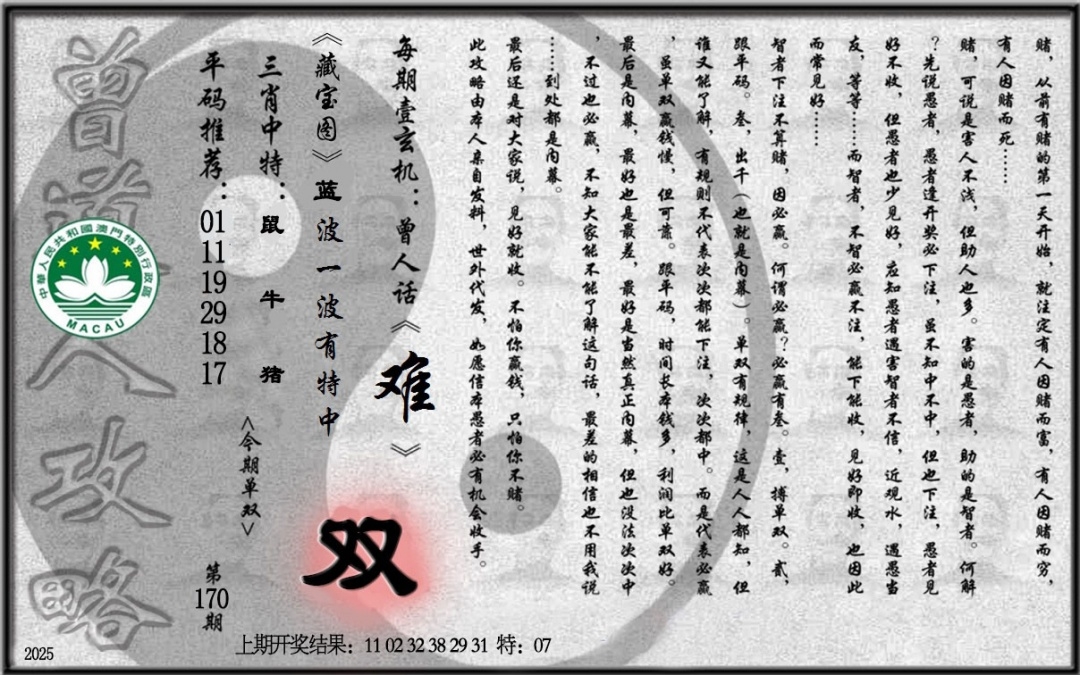 赌，从前有赌的第一天开始，就注定有人因赌而富，有人因赌而穷，
有人因赌而死……
赌，可说是害人不浅，但助人也多。害的是愚者，助的是智者。何解
？先说愚者，愚者逢开奖必下注，虽不知中不中，但也下注，愚者见
好不收，但愚者也少见好，应知愚者遇害智者不信，近观水，遇愚当
友，等等……而智者，不智必赢不注，能下能收，见好即收，也因此
而常见好……
智者下注不算赌，因必赢。何谓必赢？必赢有叁。壹，搏单双。贰，
跟平码。叁，出千（也就是内幕）。单双有规律，这是人人都知，但
谁又能了解，有规则不代表次次都能下注，次次都中。而是代表必赢
，虽单双赢钱慢，但可靠。跟平码，时间长本钱多，利润比单双好。
最后是内幕，最好也是最差，最好是当然真正内幕，但也没法次次中
，不过也必赢，不知大家能不能了解这句话，最差的相信也不用我说
……到处都是内幕。
最后还是对大家说，见好就收。不怕你赢钱，只怕你不赌。
此攻略由本人亲自发料，世外代发，如愿信本愚者必有机会收手。
每期壹玄机：曾人话《难》
《藏宝图》蓝波一波有特中
双
三肖中特：鼠 牛 猪
<今期单双>
平码推荐：01 11 19 29 18 17
第170期
曾道人攻略
中華人民共和國澳門特別行政區
MACAU
上期开奖结果：11 02 32 38 29 31 特：07
2025